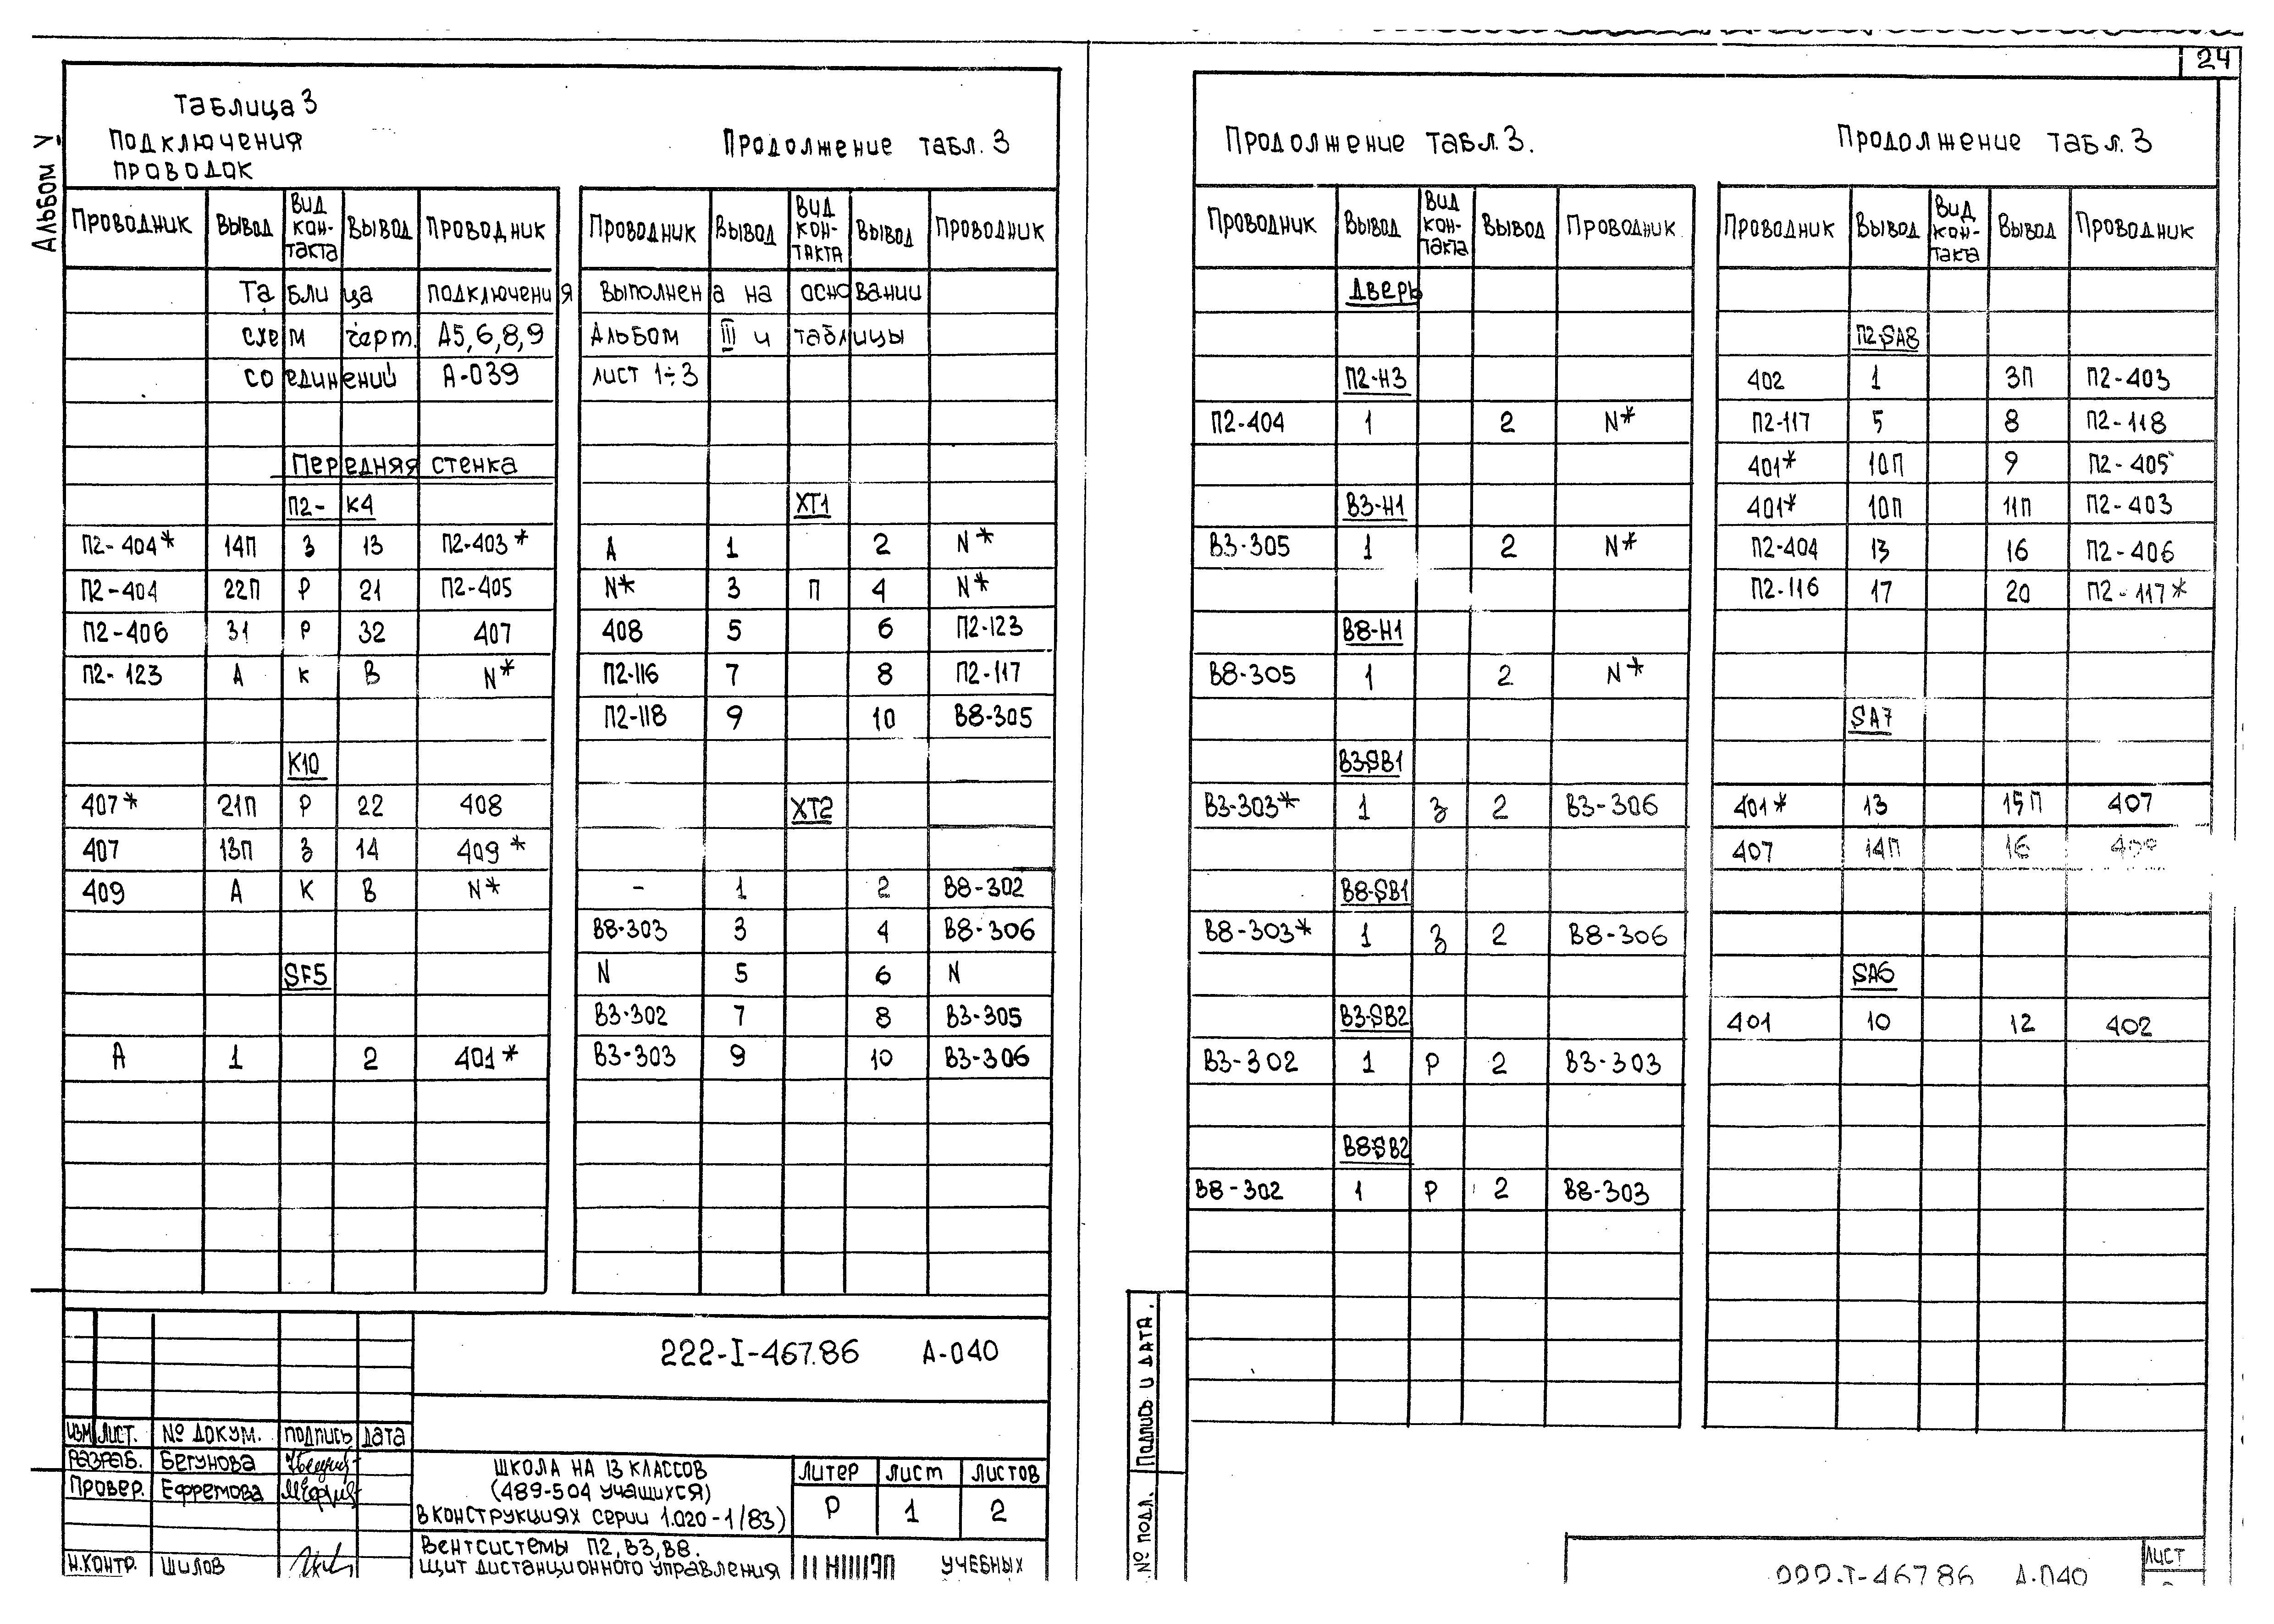 24
Альбом V
Таблица 3
Подключения
проводок
Продолжение табл. 3
Проводник Вывод Вид кон-такта Вывод Проводник
Проводник Вывод Вид кон-такта Вывод Проводник
Таблица подключения выполнена на основании
схем черт. А5,6,8,9 Альбом III и таблицы
соединений А-039 лист 1÷3
Передняя стенка
П2-К4
П2-404* 14П З 13 П2-403*
П2-404 22П Р 21 П2-405
П2-406 31 Р 32 407
П2-123 А К В N*
К10
407* 21П Р 22 408
407 13П З 14 409*
409 А К В N*
SF5
А 1 2 401*
ХТ1
А 1 2 N*
N* 3 П 4 N*
408 5 6 П2-123
П2-116 7 8 П2-117
П2-118 9 10 В8-305
ХТ2
- 1 2 В8-302
В8-303 3 4 В8-306
N 5 6 N
В3-302 7 8 В3-305
В3-303 9 10 В3-306
222-I-467.86 А-040
Изм Лист. № докум. Подпись Дата
Разраб. Бегунова
Провер. Ефремова
Н.контр. Шилов
Школа на 13 классов
(489-504 учащихся)
в конструкциях серии 1.020-1/83)
Вентсистемы П2, В3, В8.
Щит дистанционного управления
Литер Лист Листов
Р 1 2
учебных
Продолжение табл. 3.
Продолжение табл. 3
Проводник Вывод Вид кон-такта Вывод Проводник
Проводник Вывод Вид кон-такта Вывод Проводник
Дверь
П2-Н3
П2-404 1 2 N*
В3-Н1
В3-305 1 2 N*
В8-Н1
В8-305 1 2 N*
В3-SB1
В3-303* 1 З 2 В3-306
В8-SB1
В8-303* 1 З 2 В8-306
В3-SB2
В3-302 1 Р 2 В3-303
В8-SB2
В8-302 1 Р 2 В8-303
П2-SA8
402 1 3П П2-403
П2-117 5 8 П2-118
401* 10П 9 П2-405
401* 10П 11П П2-403
П2-404 13 16 П2-406
П2-116 17 20 П2-117*
SA7
401* 13 15П 407
407 14П 16
SA6
401 10 12 402
Подпись и дата.
№ подл.
222-I-467.86 А-040
Лист